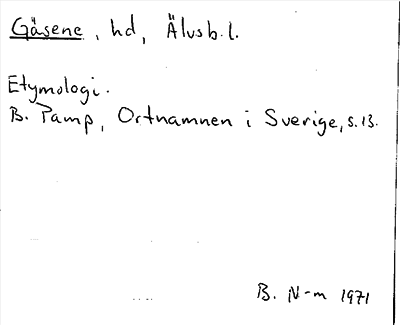 Gäsene, hd, Älvsb. l.
Etymologi.
B. Pamp, Ortnamnen i Sverige, s. 13.
B. N-m 1971